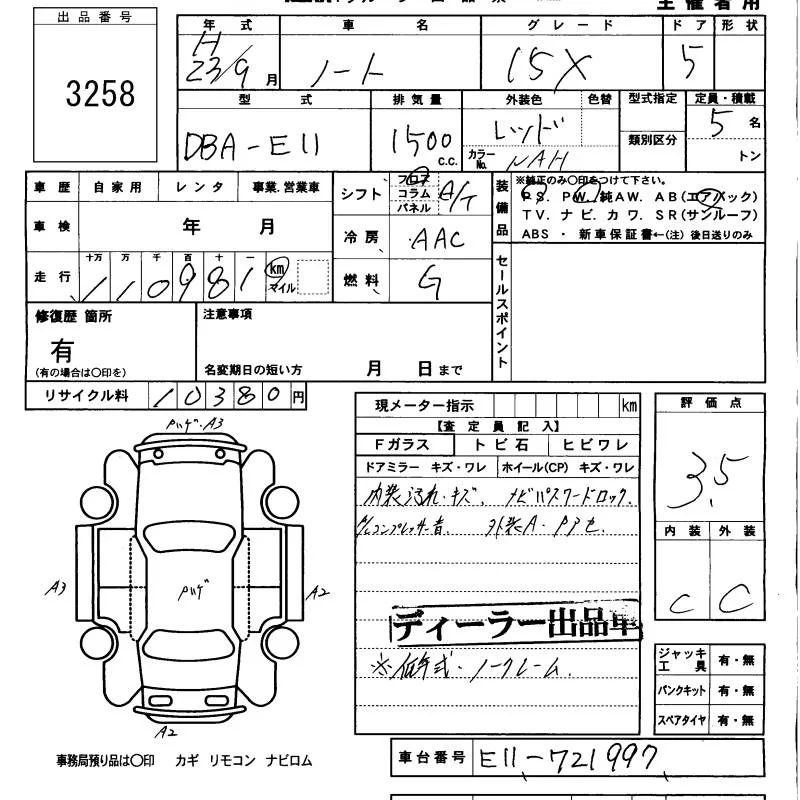 主催者用
出品番号
3258
年式 車名 グレード ドア 形状
H23/9月 ノート 15X 5
型式 排気量 外装色 色替 型式指定 定員・積載
DBA-E11 1500 c.c. レッド 類別区分 5名
カラーNo. NAH トン
車歴 自家用 レンタ 事業.営業車
シフト フロア コラム パネル A/T
装備品 ※純正のみ〇印をつけて下さい。
PS. PW. 純AW. AB(エアバック)
TV. ナビ. カワ. SR(サンルーフ)
ABS ・ 新車保証書←(注) 後日送りのみ
車検 年 月
冷房 AAC
走行 十万 万 千 百 十 一
110981 km マイル
燃料 G
セールスポイント
修復歴 箇所
有
(有の場合は〇印を)
注意事項
名変期日の短い方 月 日まで
リサイクル料 10380円
現メーター指示 km
【査定員記入】
Fガラス トビ石 ヒビワレ
ドアミラー キズ・ワレ ホイール(CP) キズ・ワレ
内装汚れ・キズ、ナビパスワードロック.
コンプレッサー音. 外装A・
ディーラー出品車
※低年式・ノークレーム.
評価点
3.5
内装 外装
C C
A3
A3
A2
A2
ジャッキ工具 有・無
パンクキット 有・無
スペアタイヤ 有・無
事務局預り品は〇印 カギ リモコン ナビロム
車台番号 E11-721997